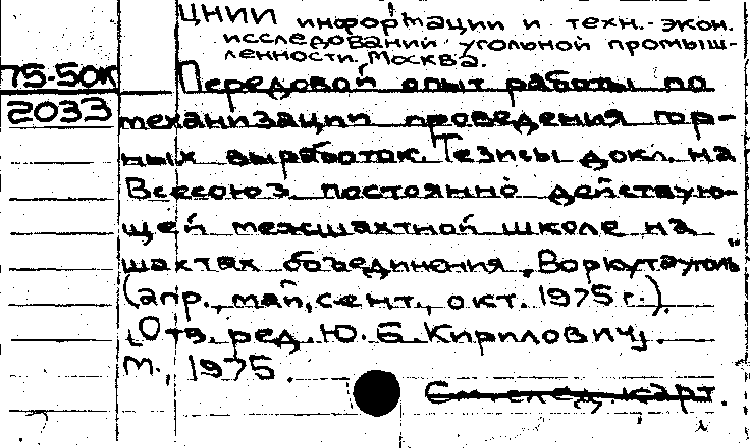 ЦНИИ информации и техн.-экон.
исследований угольной промыш-
ленности. Москва.
75-50К Передовой опыт работы по
2033 механизации проведения гор-
ных выработок. Тезисы докл. на
Всесоюз. постоянно действую-
щей межшахтной школе на
шахтах объединения „Воркутауголь"
(апр., май, сент., окт. 1975 г.).
[Отв. ред. Ю. Б. Кирилович].
М., 1975.
См. след. карт.